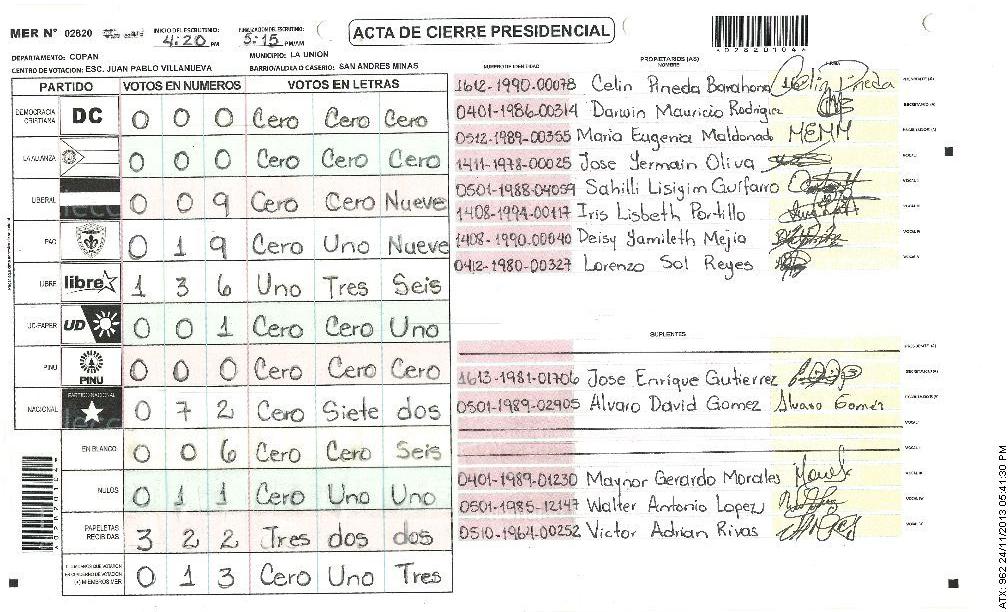 MER N° 02820 INICIO DEL ESCRUTINIO: 4:20 PM FINALIZACION DEL ESCRUTINIO: 5:15 PM/AM
ACTA DE CIERRE PRESIDENCIAL
DEPARTAMENTO: COPAN MUNICIPIO: LA UNION
CENTRO DE VOTACION: ESC. JUAN PABLO VILLANUEVA BARRIO/ALDEA O CASERIO: SAN ANDRES MINAS
PARTIDO VOTOS EN NUMEROS VOTOS EN LETRAS
DEMOCRACIA CRISTIANA DC 0 0 0 Cero Cero Cero
LA ALIANZA 0 0 0 Cero Cero Cero
LIBERAL 0 0 9 Cero Cero Nueve
PAC 0 1 9 Cero Uno Nueve
LIBRE libre 1 3 6 Uno Tres Seis
UD-FAPER UD 0 0 1 Cero Cero Uno
PINU PINU 0 0 0 Cero Cero Cero
NACIONAL PARTIDO NACIONAL 0 7 2 Cero Siete dos
EN BLANCO 0 0 6 Cero Cero Seis
NULOS 0 1 1 Cero Uno Uno
PAPELETAS RECIBIDAS 3 2 2 Tres dos dos
(+) MIEMBROS MER 0 1 3 Cero Uno Tres
PROPIETARIOS (AS)
NUMERO DE IDENTIDAD NOMBRE FIRMA
1612-1990-00078 Celin Pineda Barahona Celin Pineda
0401-1986-00314 Darwin Mauricio Rodriguez
0512-1989-00355 Maria Eugenia Maldonado MEMM
1411-1978-00025 Jose Yermain Oliva
0501-1988-04059 Sahilli Lisigim Guifarro
1408-1994-00117 Iris Lisbeth Portillo
1408-1990-00040 Deisy Yamileth Mejia
0412-1980-00327 Lorenzo Sol Reyes
SUPLENTES
1613-1981-01706 Jose Enrique Gutierrez
0501-1989-02905 Alvaro David Gomez Alvaro Gomez
0401-1989-01230 Maynor Gerardo Morales
0501-1985-12147 Walter Antonio Lopez
0510-1964-00252 Victor Adrian Rivas
ATX: 962 24/11/2013 05:41:30 PM